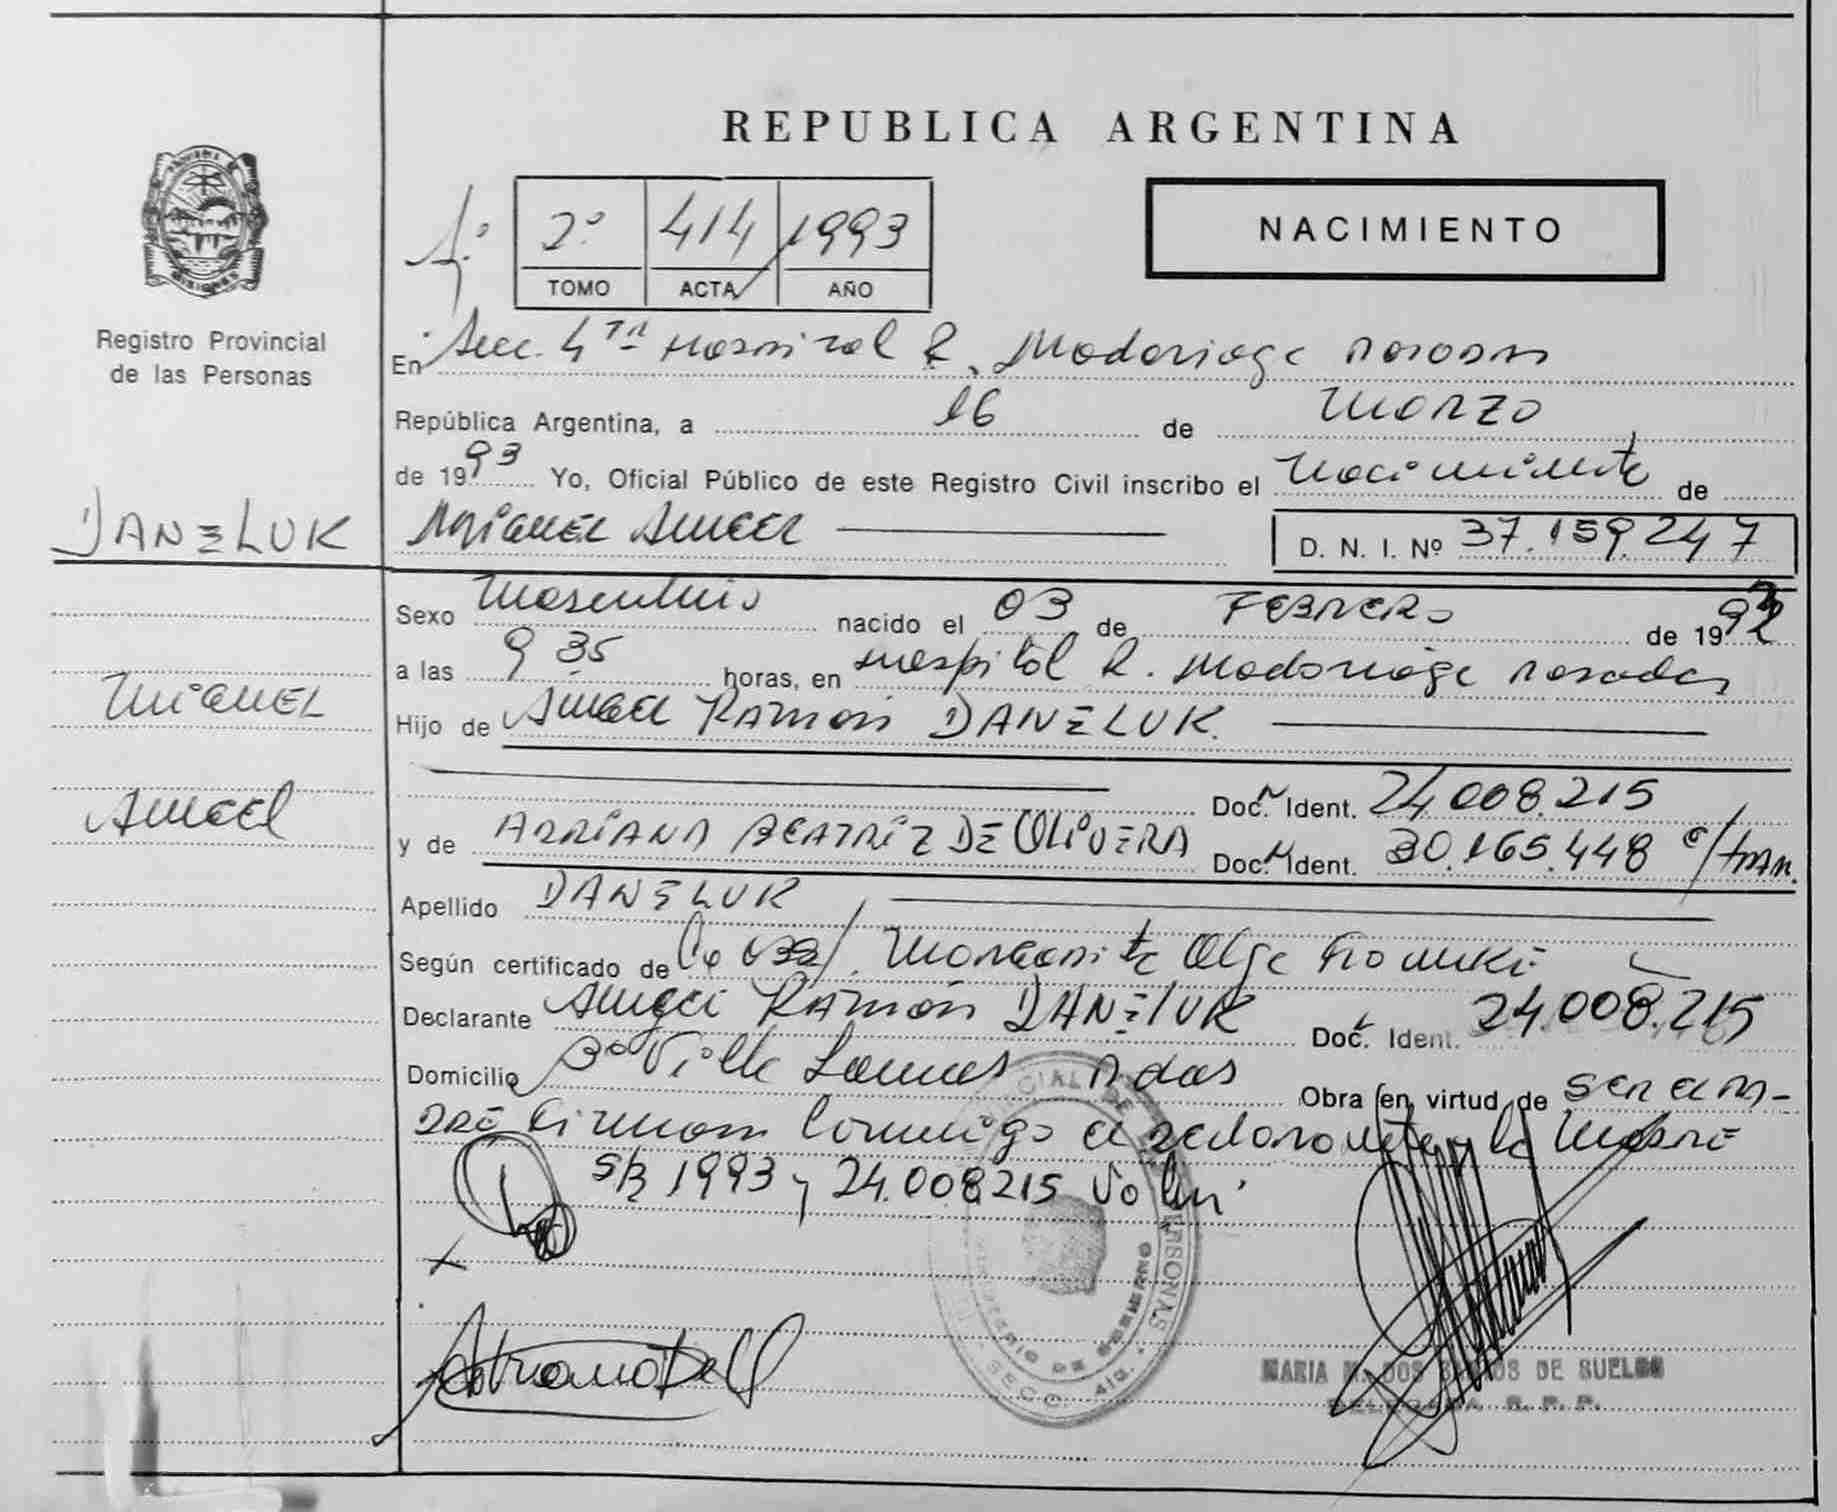 REPUBLICA ARGENTINA
NACIMIENTO
1º 2º 414 1993
TOMO ACTA AÑO
Registro Provincial
de las Personas
En Secc. 4ta Hospital R. Madariaga Posadas
República Argentina, a 16 de Marzo
de 1993 Yo, Oficial Público de este Registro Civil inscribo el Nacimiento de
DANELUK
Miguel Angel D. N. I. Nº 37.159.247
Sexo Masculino nacido el 03 de Febrero de 19
a las 9 35 horas, en Hospital R. Madariaga Posadas
MIGUEL
Hijo de Angel Ramón DANELUK.
Doc. Ident. 24.008.215
Angel
y de ADRIANA BEATRIZ DE OLIVERA Doc. Ident. 30.165.448 e/tram.
Apellido DANELUK
Según certificado de Margarita Olga
Declarante Angel Ramón DANELUK Doc. Ident. 24.008.215
Domicilio Bº Villa Lanus Pdas Obra en virtud de ser el pa-
dre firman conmigo el declarante y la Madre
S/R 1993 y 24.008215 Vale
MARIA M. DOS SANTOS DE SUELDO
DELEGADA R. P. P.